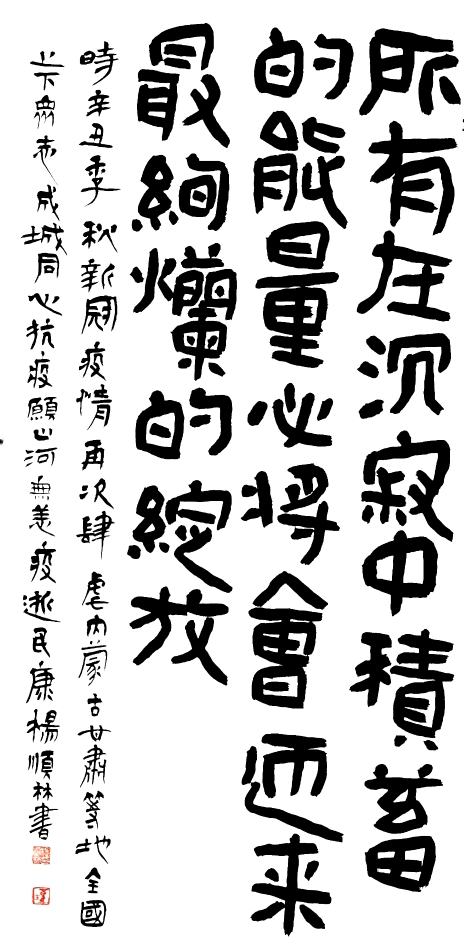 所有在沉寂中積蓄
的能量必将會迊来
最絢爛的綻放
時辛丑季秋新冠疫情再次肆虐内蒙古甘肅等地全國
上下衆志成城同心抗疫願山河無恙疫逝民康楊順林書